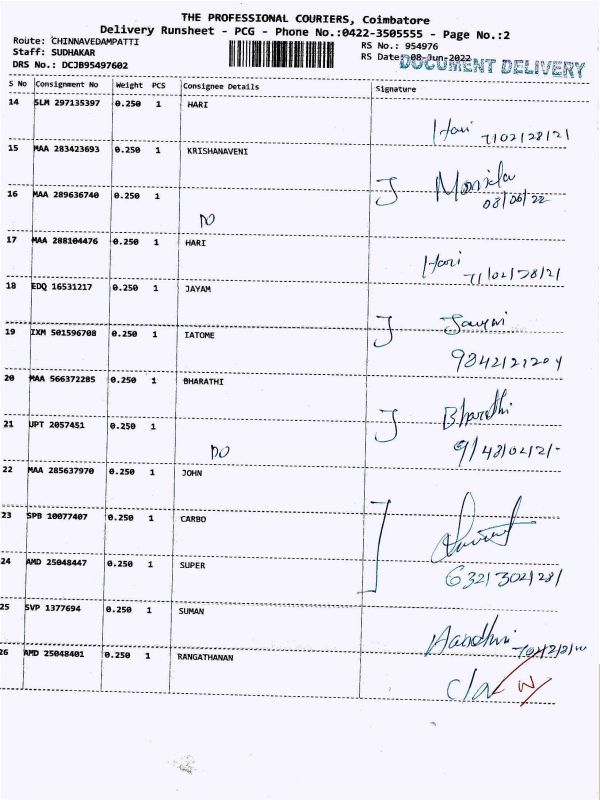 THE PROFESSIONAL COURIERS, Coimbatore
Delivery Runsheet - PCG - Phone No.:0422-3505555 - Page No.:2
Route: CHINNAVEDAMPATTI
RS No.: 954976
Staff: SUDHAKAR
RS Date: 08-Jun-2022
DOCUMENT DELIVERY
DRS No.: DCJB95497602
S No Consignment No Weight PCS Consignee Details Signature
14 SLM 297135397 0.250 1 HARI
Hari 7102128121
15 MAA 283423693 0.250 1 KRISHANAVENI
08/06/22
16 MAA 289636740 0.250 1
DO
17 MAA 288104476 0.250 1 HARI
Hari
18 EDQ 16531217 0.250 1 JAYAM
19 IXM 501596708 0.250 1 IATOME
20 MAA 566372285 0.250 1 BHARATHI
Bharathi
21 UPT 2057451 0.250 1
DO
22 MAA 285637970 0.250 1 JOHN
23 SPB 10077407 0.250 1 CARBO
24 AMD 25048447 0.250 1 SUPER
25 SVP 1377694 0.250 1 SUMAN
26 AMD 25048401 0.250 1 RANGATHANAN